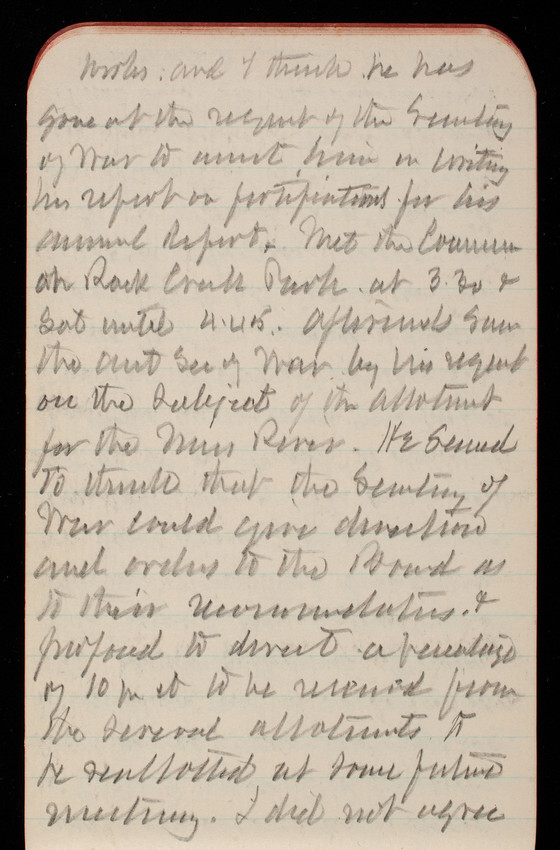 works. and I think he has
gone at the request of the Secretary
of War to assist him in writing
his report on fortifications for his
annual Report. Met the Commn
on Rock Creek Park at 3.30 &
Sat until 4.45. Afterwards Saw
the asst Sec of War by his request
on the Subject of the allotment
for the Miss River. He Seemed
to think that the Secretary of
War could give direction
and orders to the Board as
to their recommendations. &
proposed to direct a percentage
of 10 pr ct to be reserved from
the several allotments to
be reallotted at some future
meeting. I did not agree